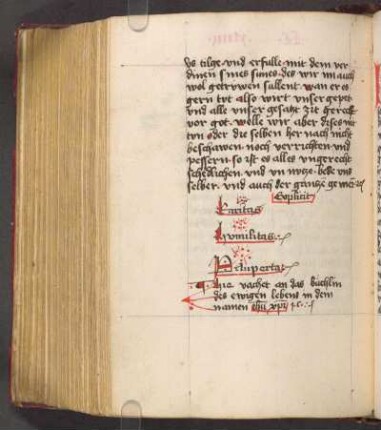 vs tilge vnd erfulle mit dem ver
dinen sines sunes des wir im auch
wol getruwen sallent wan er es
gern tvt also wirt vnser gepet
vnd alle vnser gesatz zit gerech
vor got welle wir aber dises nit
tvn oder die selben her nach nicht
beschawen noch verrichten vnd
pessern so ist es alles vngerecht
schedlichen vnd vn wege bede vns
selber vnd auch der gantze gemein
Explicit
Caritas
Humilitas
Paupertas
vachet an das büchlin
des ewigen lebens in dem
namen ihu xpi